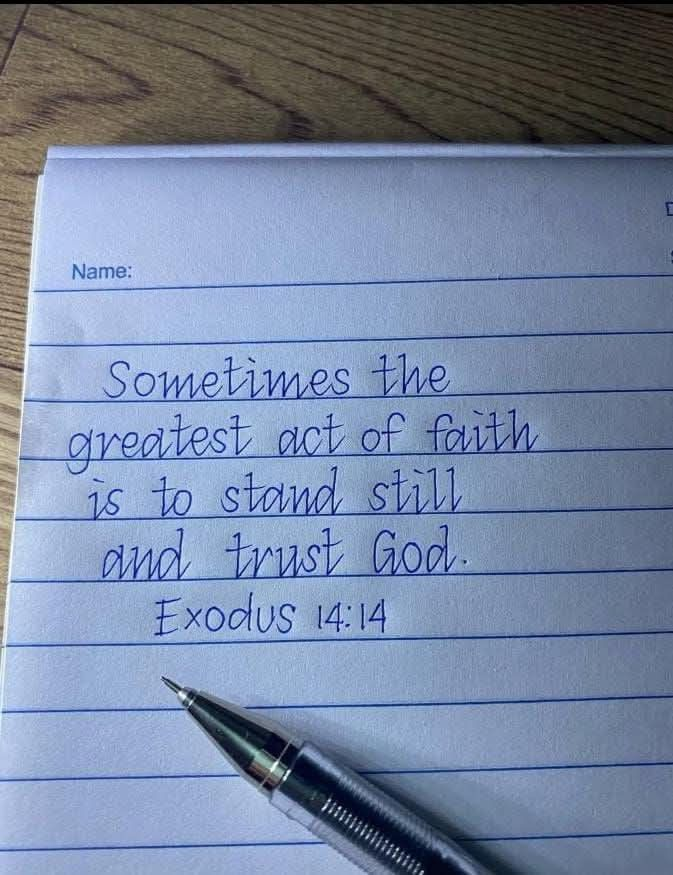 Name:
Sometimes the
greatest act of faith
is to stand still
and trust God.
Exodus 14:14